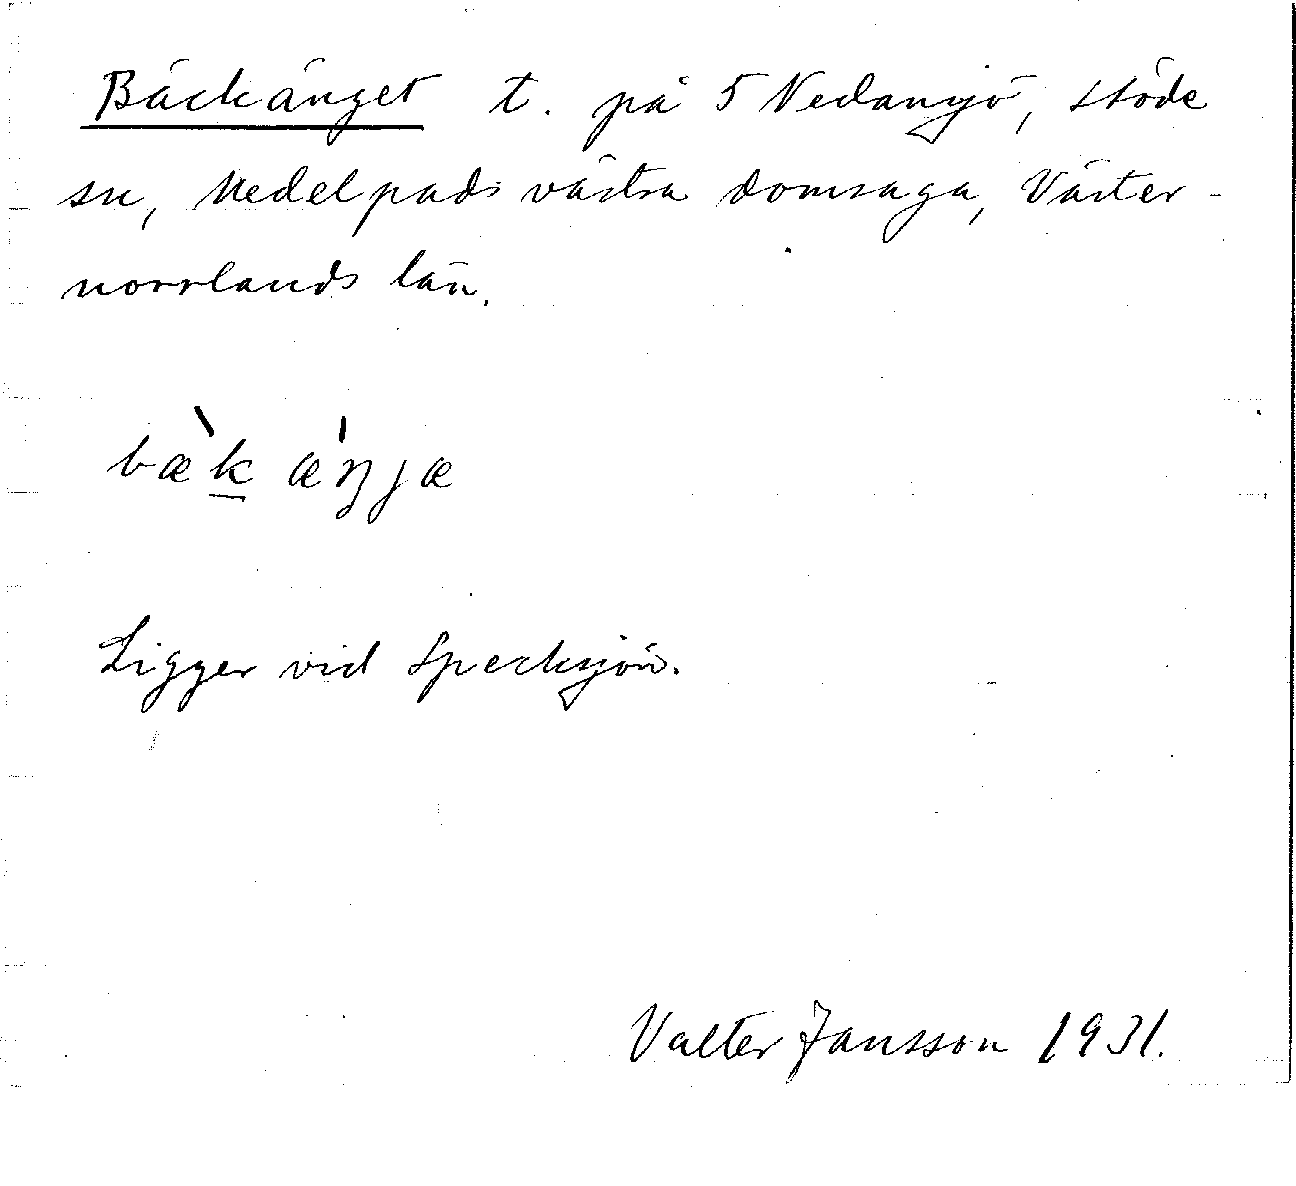 Bäckänget t. på 5 Nedansjö, Stöde
sn, Medelpads västra domsaga, Väster-
norrlands län.
bæ̀k æ̍ŋjæ
Ligger vid Specksjön.
Valter Jansson 1931.